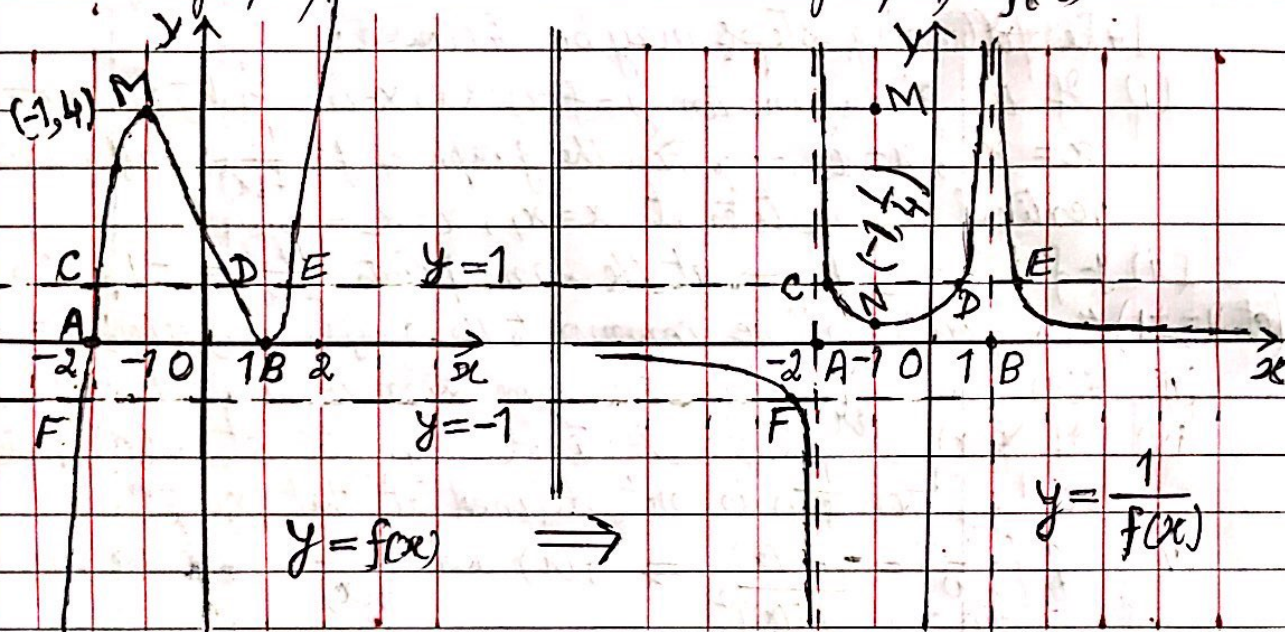 y
M
(-1,4)
C
D
E
y=1
A
-2
-1
0
1
B
2
x
F
y=-1
y=f(x)
⟹
y
M
N(-1,1/4)
C
D
E
-2
A
-1
0
1
B
x
F
y=1/f(x)